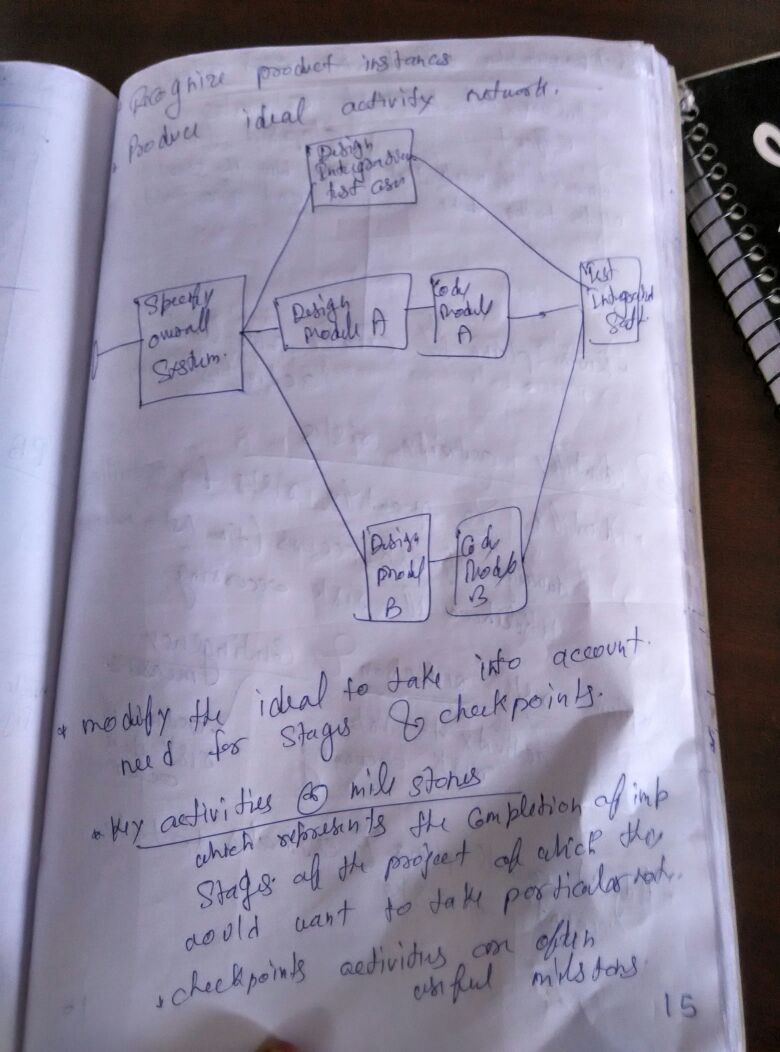 Recognize product instances
Produce ideal activity network.
Design
Integration
test case
Specify
overall
System.
Design
Module A
Code
Module
A
Test
Integrated
Soft.
Design
Modul
B
Code
Module
B
* modify the ideal to take into account.
need for stages & checkpoints.
* Key activities or mile stones
which represents the completion of imp
stages of the project of which they
would want to take particular not.
* checkpoints activities are often
useful milstons.
15